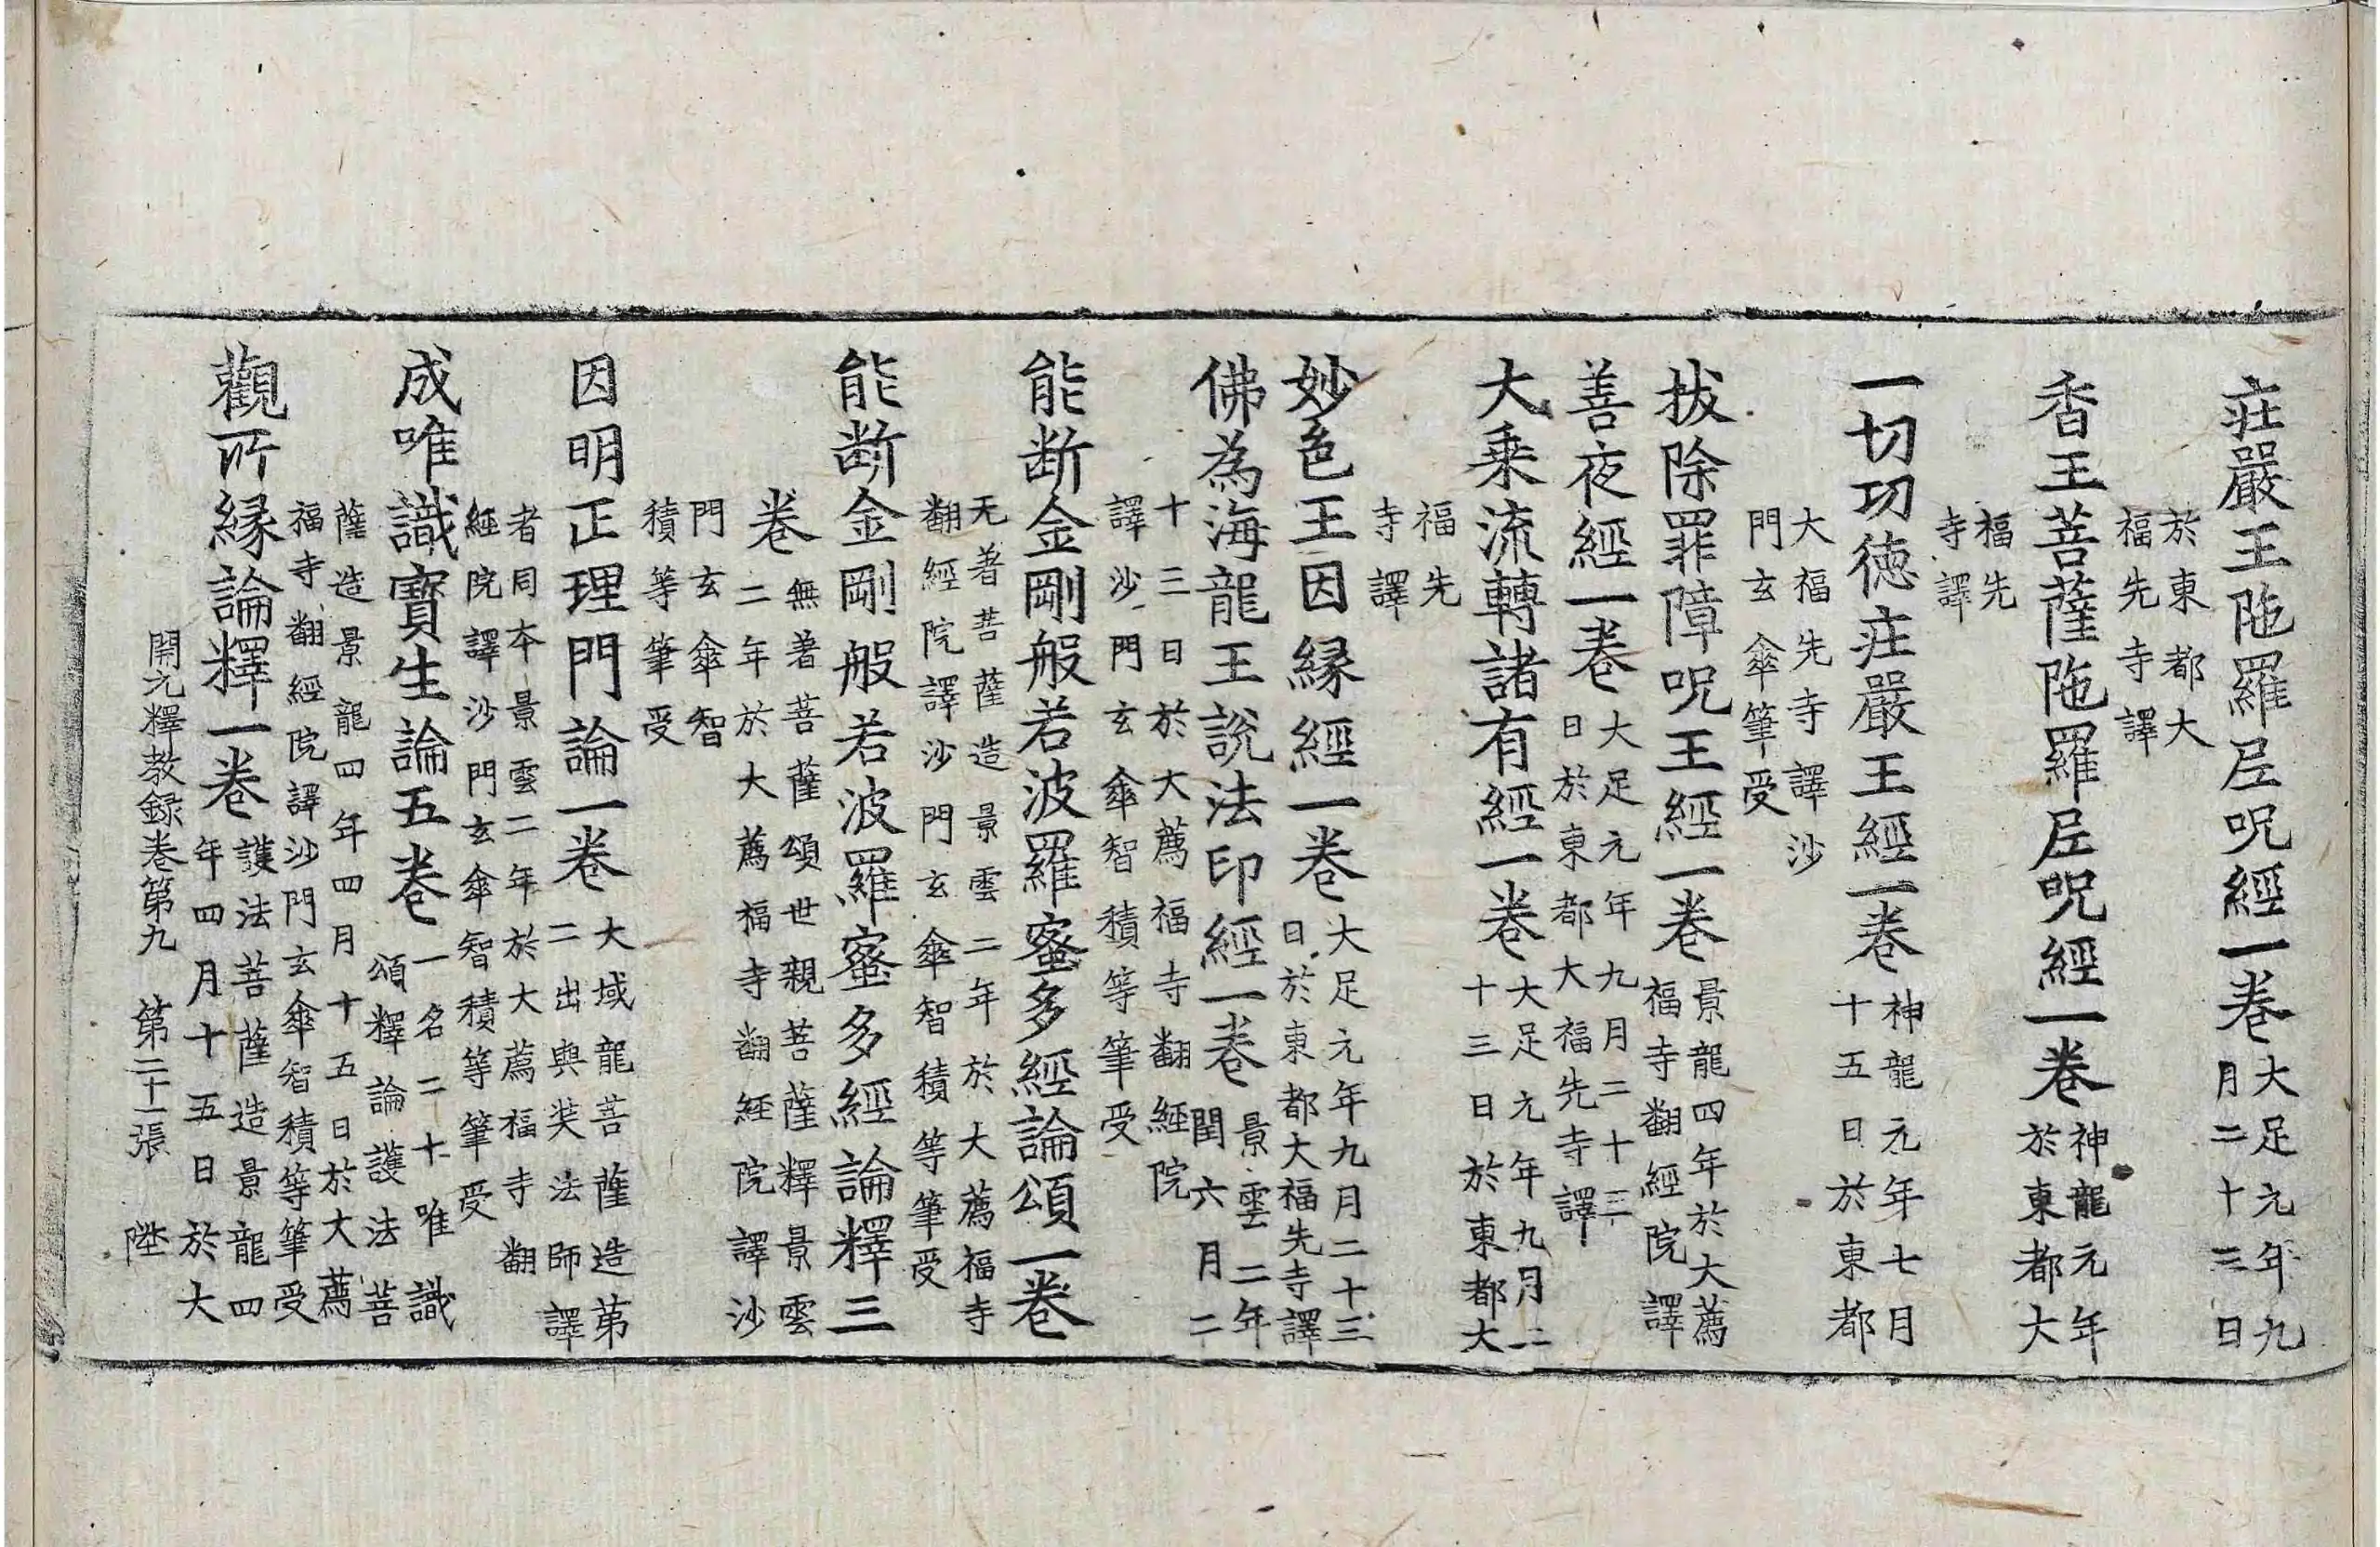 莊嚴王陁羅尼呪經一卷大足元年九月二十三日
於東都大福先寺譯
香王菩薩陁羅尼呪經一卷神龍元年於東都大
福先寺譯
一切功德莊嚴王經一卷神龍元年七月十五日於東都
大福先寺譯沙門玄傘筆受
拔除罪障呪王經一卷景龍四年於大薦福寺翻經院譯
善夜經一卷大足元年九月二十三日於東都大福先寺譯
大乗流轉諸有經一卷大足元年九月二十三日於東都大
福先寺譯
妙色王因縁經一卷大足元年九月二十三日於東都大福先寺譯
佛為海龍王說法印經一卷景雲二年閏六月二
十三日於大薦福寺翻經院譯沙門玄傘智積等筆受
能断金剛般若波羅蜜多經論頌一卷
无著菩薩造景雲二年於大薦福寺翻經院譯沙門玄傘智積等筆受
能断金剛般若波羅蜜多經論釋三
卷無著菩薩頌世親菩薩釋景雲二年於大薦福寺翻經院譯沙
門玄傘智積等筆受
因明正理門論一卷大域龍菩薩造苐二出與奘法師譯
者同本景雲二年於大薦福寺翻經院譯沙門玄傘智積等筆受
成唯識寳生論五卷一名二十唯識頌釋論護法菩
薩造景龍四年四月十五日於大薦福寺翻經院譯沙門玄傘智積等筆受
觀所縁論釋一卷護法菩薩造景龍四年四月十五日於大
開元釋教録卷第九　第二十一張　陞